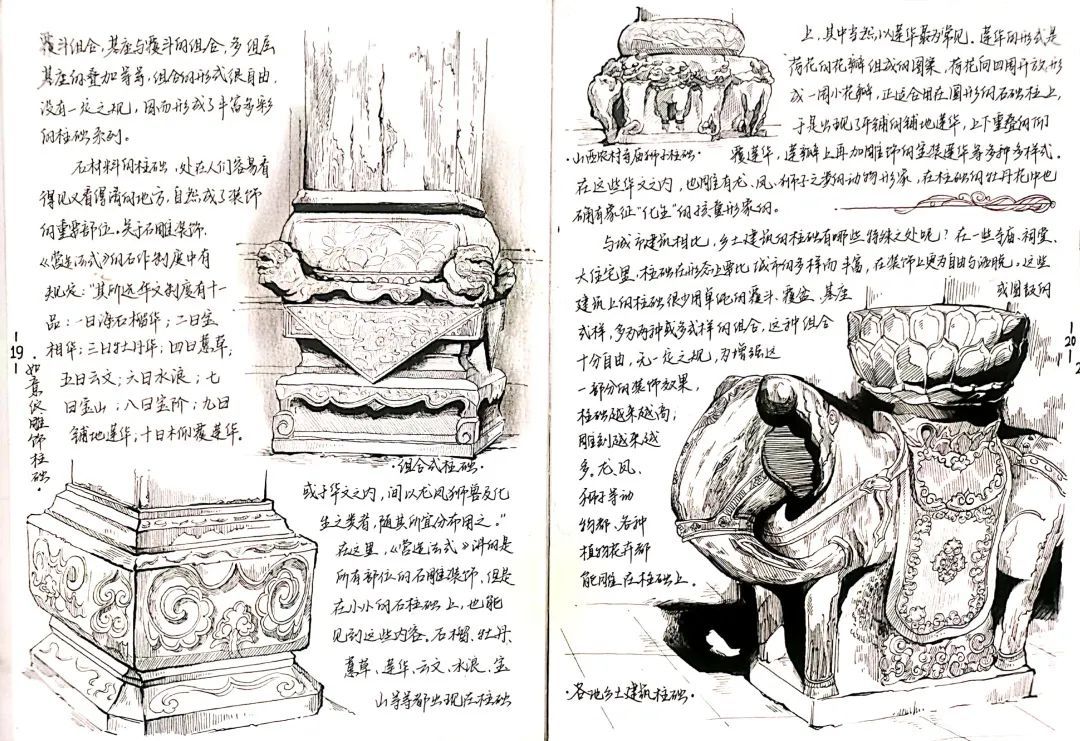 覆斗组合，基座与覆斗的组合，多组层
基座的叠加等等，组合的形式很自由，
没有一定之规，因而形成了丰富多彩
的柱础系列。
石材料的柱础，处在人们容易看
得见又看得清的地方，自然成了装饰
的重要部位。关于石雕装饰，
《营造法式》的石作制度中有
规定：“其所造华文制度有十一
品：一曰海石榴华；二曰宝
相华；三曰牡丹华；四曰蕙草；
五曰云文；六曰水浪；七
曰宝山；八曰宝阶；九曰
铺地莲华，十曰仰覆莲华。
-19-
·如意纹雕饰柱础·
·组合式柱础·
或于华文之内，间以龙凤狮兽及化
生之类者，随其所宜分布用之。”
在这里，《营造法式》讲的是
所有部位的石雕装饰，但是
在小小的石柱础上，也能
见到这些内容。石榴、牡丹、
蕙草、莲华、云文、水浪、宝
山等等都出现在柱础
上，其中当然以莲华最为常见。莲华的形式是
荷花的花瓣组成的图案，荷花向四周开放形
成一周小花瓣，正适合用在圆形的石础柱上，
于是出现了平铺的铺地莲华，上下重叠的仰
·山西农村寺庙狮子柱础·
覆莲华，莲瓣上再加雕饰的宝装莲华等多种多样式。
在这些华文之内，也雕有龙、凤、狮子之类的动物形象，在柱础的牡丹花中也
确有象征“化生”的孩童形象的。
与城市建筑相比，乡土建筑的柱础有哪些特殊之处呢？在一些寺庙、祠堂、
大住宅里，柱础在形态上要比城市的多样而丰富，在装饰上更为自由与洒脱，这些
建筑上的柱础很少用单纯的覆斗、覆盆、基座
或圆鼓的
式样，多为两种或多式样的组合，这种组合
十分自由，无一定之规，为增强这
一部分的装饰效果，
柱础越来越高；
雕刻越来越
多。龙、凤、
狮子等动
物都、各种
植物花卉都
能雕在柱础上。
-20-
·各地乡土建筑柱础·